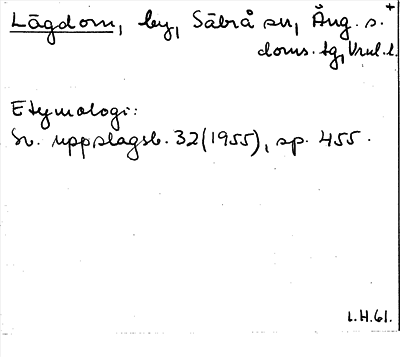 Lägdom, by, Säbrå sn, Ång. s. +
doms. tg, Vnl. l.
Etymologi:
Sv. uppslagsb. 32 (1955), sp. 455.
L.H.61.